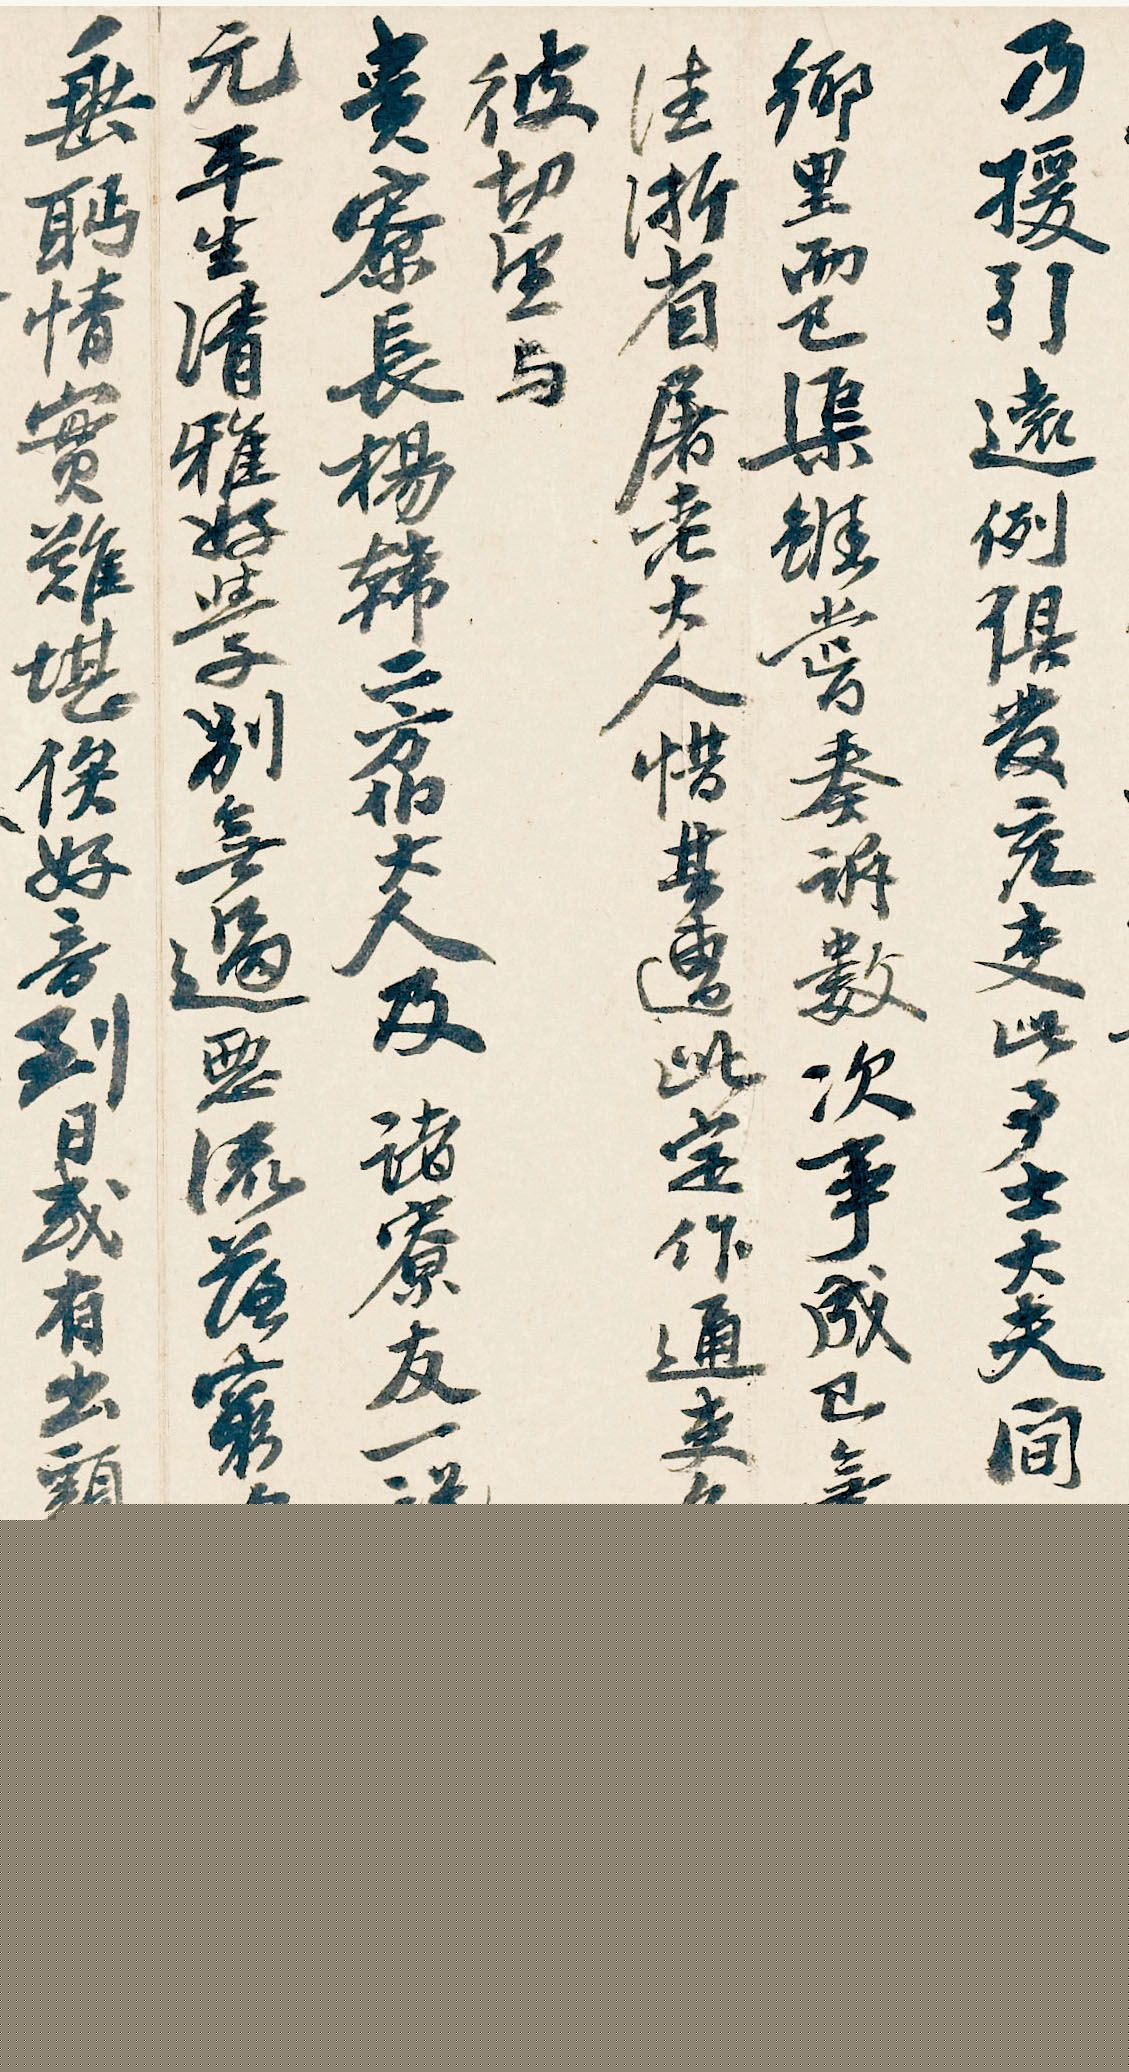 乃援引遠例俱發充吏此事士大夫間
鄉里而已渠雖嘗奏訴數次事成已無
往浙省屠老大人惜其遭此定作通吏名
彼切望与
貴寮長楊韓二方伯大人及諸寮友一
元平生清雅好學別無過惡流落窮
垂眄情實難堪俟好音到日或有出頭